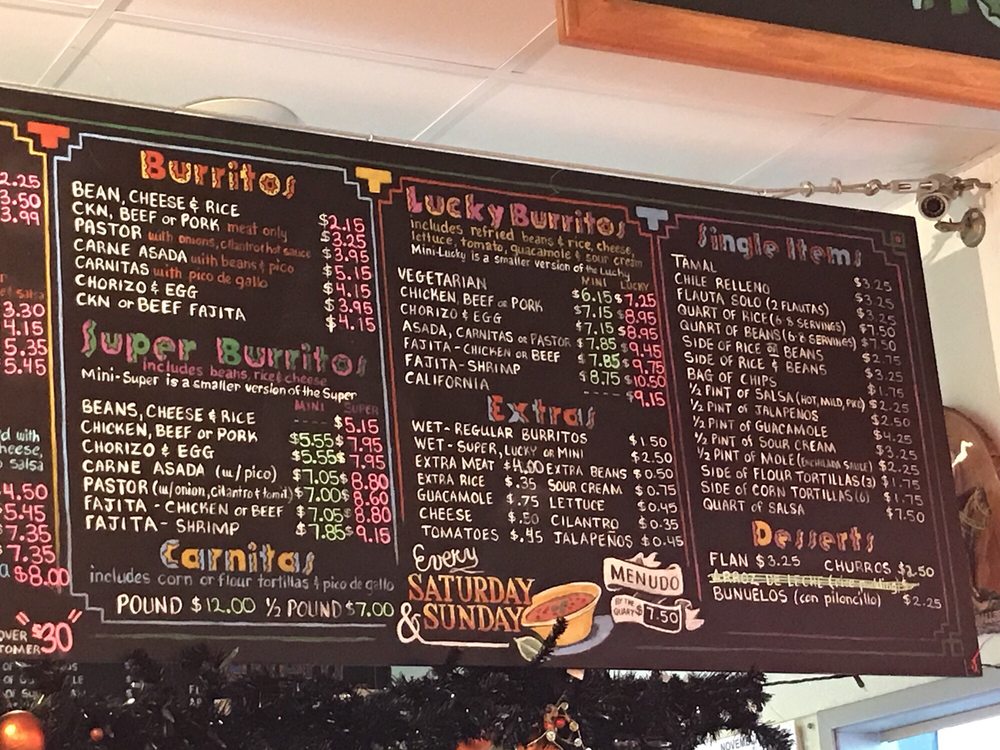 2.25
3.50
3.99
3.30
4.15
5.35
5.45
4.50
5.45
7.35
7.35
$8.00
"$30"
Burritos
BEAN, CHEESE & RICE $2.15
CKN, BEEF or PORK meat only $3.25
PASTOR with onions, cilantro & hot sauce $3.95
CARNE ASADA with beans & pico $5.15
CARNITAS with pico de gallo $4.15
CHORIZO & EGG $3.95
CKN or BEEF FAJITA $4.15
Super Burritos
includes beans, rice & cheese
Mini-Super is a smaller version of the Super
MINI SUPER
BEANS, CHEESE & RICE ---- $5.15
CHICKEN, BEEF or PORK $5.55 $7.95
CHORIZO & EGG $5.55 $7.95
CARNE ASADA (w/pico) $7.05 $8.80
PASTOR (w/onion, cilantro & tomil) $7.00 $8.60
FAJITA - CHICKEN or BEEF $7.05 $8.80
FAJITA - SHRIMP $7.85 $9.15
Carnitas
includes corn or flour tortillas & pico de gallo
POUND $12.00 ½ POUND $7.00
Lucky Burritos
includes refried beans & rice, cheese,
lettuce, tomato, guacamole & sour cream
Mini-Lucky is a smaller version of the Lucky
MINI LUCKY
VEGETARIAN $6.15 $7.25
CHICKEN, BEEF or PORK $7.15 $8.95
CHORIZO & EGG $7.15 $8.95
ASADA, CARNITAS or PASTOR $7.85 $9.45
FAJITA - CHICKEN or BEEF $7.85 $9.75
FAJITA - SHRIMP $8.75 $10.50
CALIFORNIA ---- $9.15
Extras
WET - REGULAR BURRITOS $1.50
WET - SUPER, LUCKY or MINI $2.50
EXTRA MEAT $4.00 EXTRA BEANS $0.50
EXTRA RICE $.35 SOUR CREAM $0.75
GUACAMOLE $.75 LETTUCE $0.45
CHEESE $.50 CILANTRO $0.35
TOMATOES $.45 JALAPEÑOS $0.45
Every
SATURDAY
& SUNDAY
MENUDO
BY THE QUART $7.50
Single Items
TAMAL $3.25
CHILE RELLENO $3.25
FLAUTA SOLO (2 FLAUTAS) $3.25
QUART OF RICE (6-8 SERVINGS) $7.50
QUART OF BEANS (6-8 SERVINGS) $7.50
SIDE OF RICE or BEANS $2.75
SIDE OF RICE & BEANS $3.25
BAG OF CHIPS $1.75
½ PINT OF SALSA (HOT, MILD, PICO) $2.25
½ PINT OF JALAPENOS $2.50
½ PINT OF GUACAMOLE $4.25
½ PINT OF SOUR CREAM $3.25
½ PINT OF MOLE (ENCHILADA SAUCE) $2.25
SIDE OF FLOUR TORTILLAS (3) $1.75
SIDE OF CORN TORTILLAS (6) $1.75
QUART OF SALSA $7.50
Desserts
FLAN $3.25 CHURROS $2.50
ARROZ DE LECHE (rice pudding)
BUNUELOS (con piloncillo) $2.25